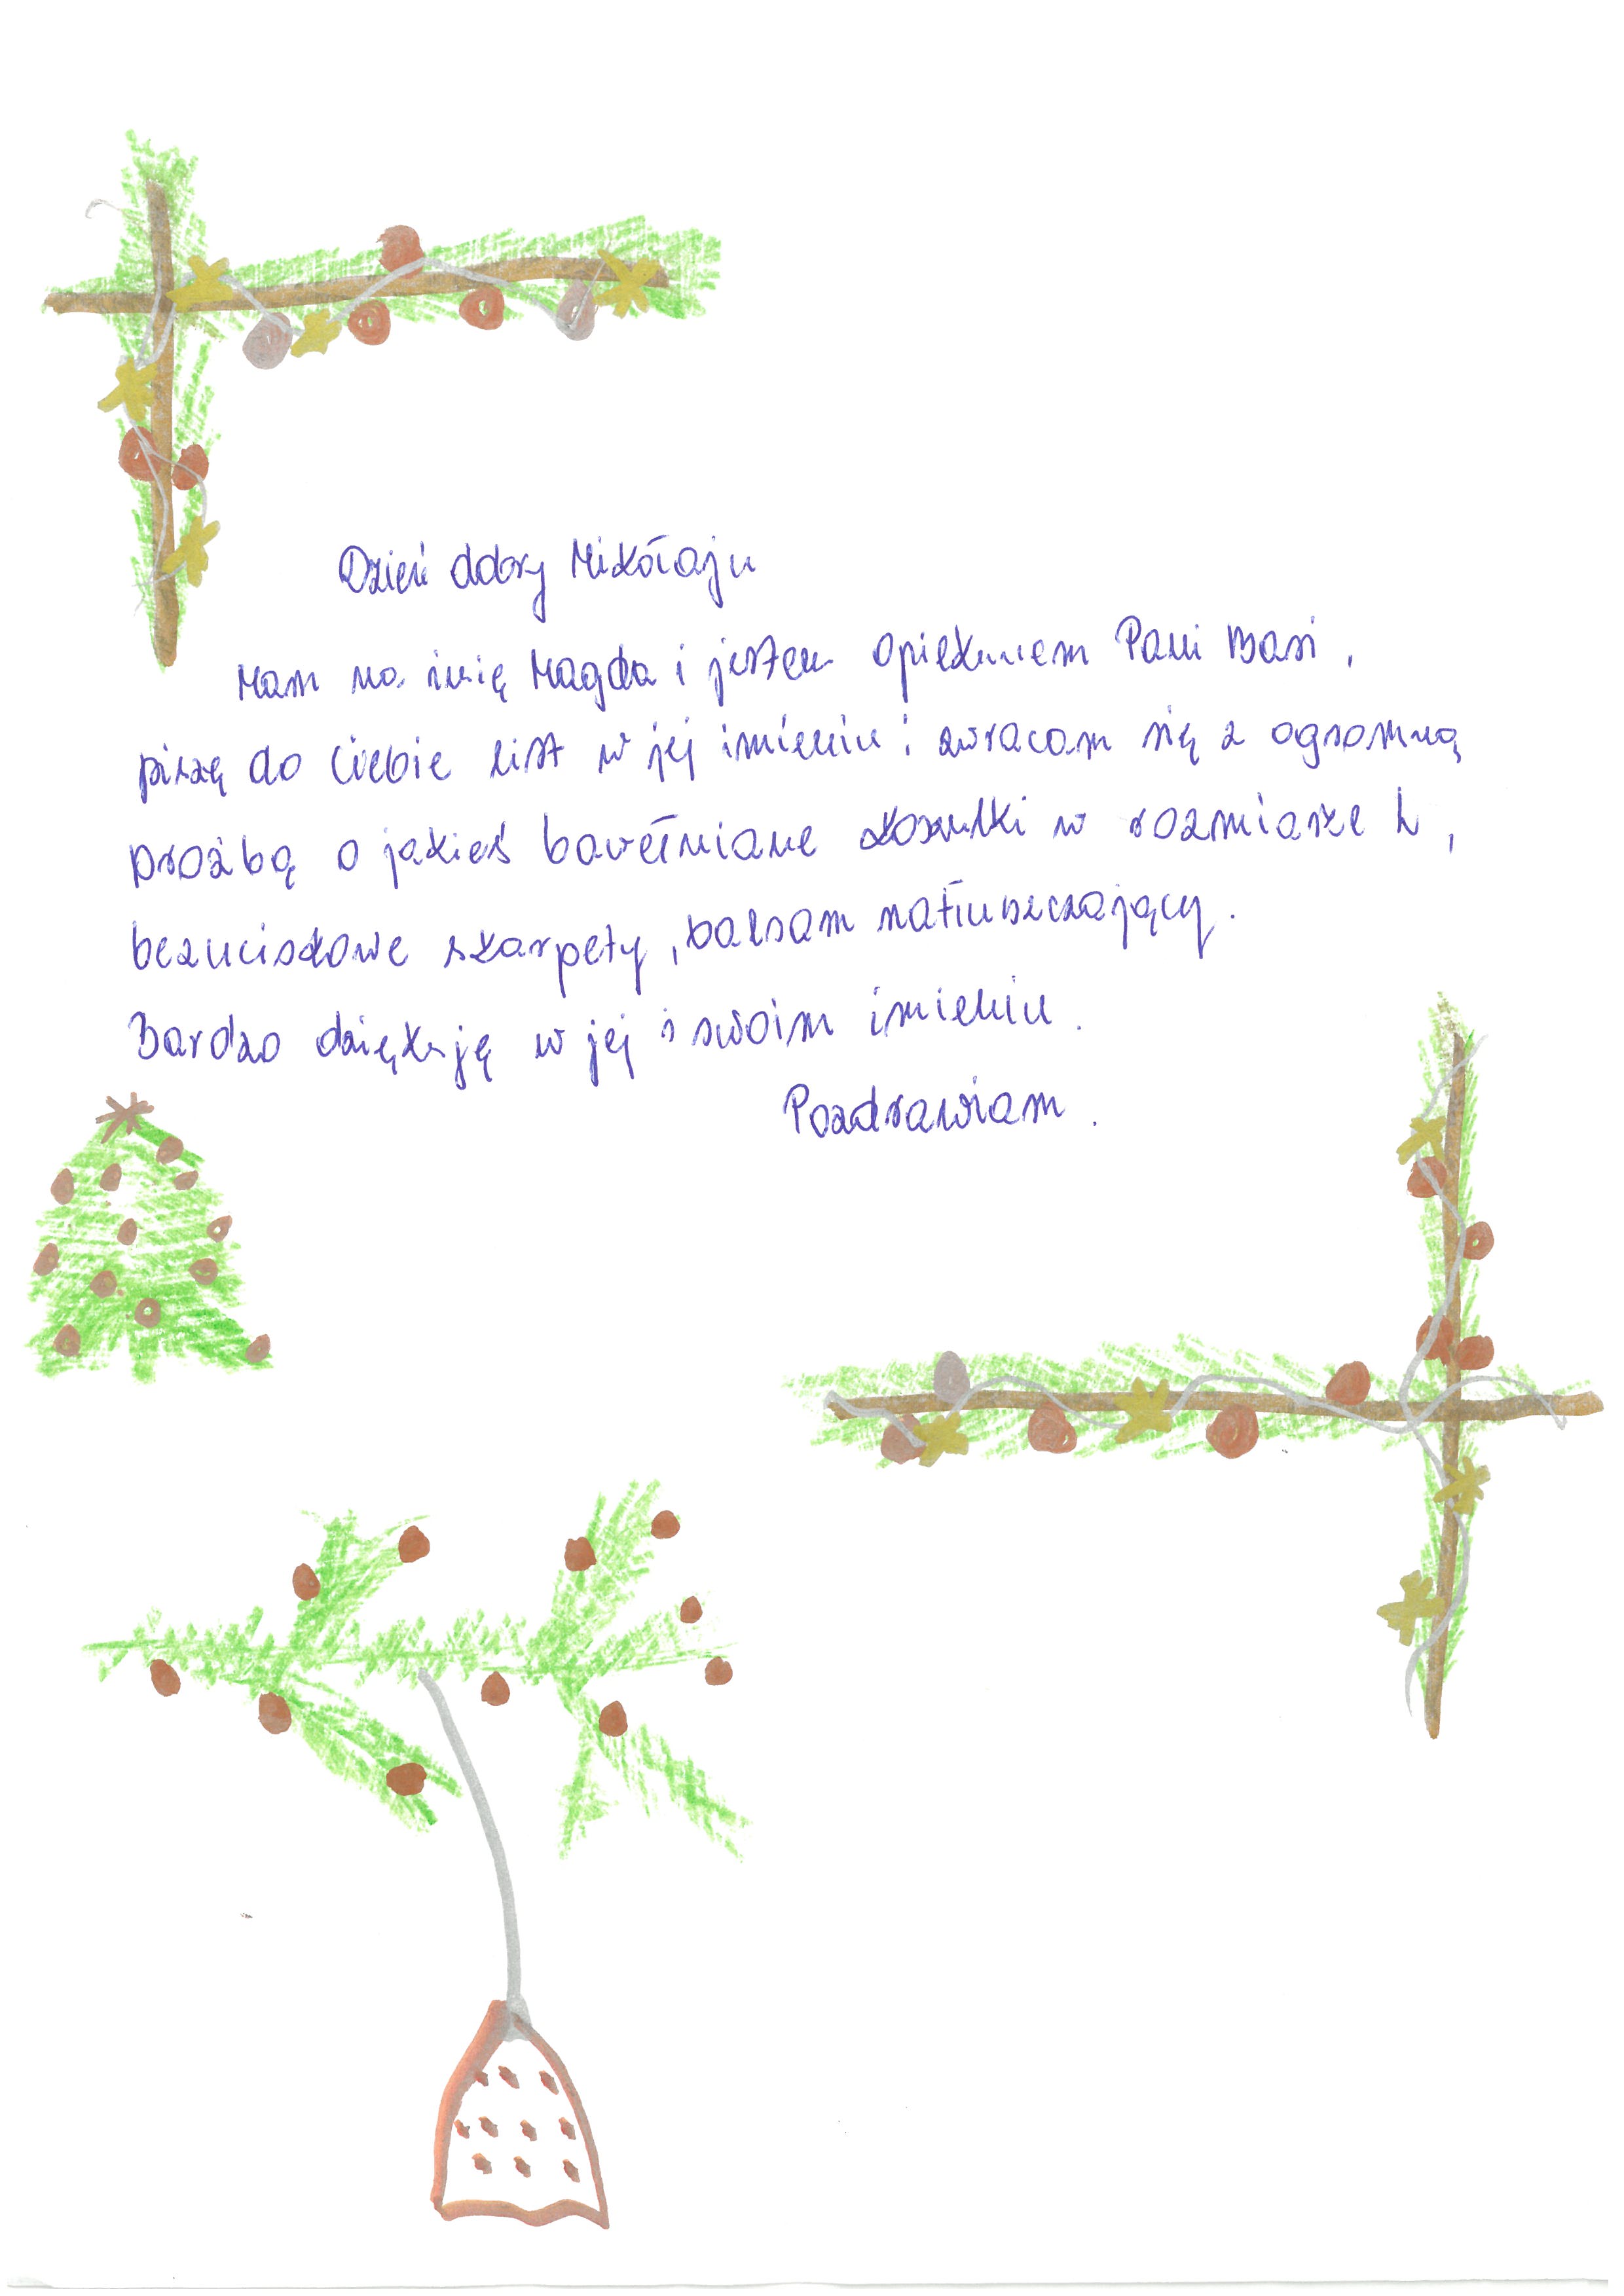 Dzień dobry Mikołaju
Mam na imię Magda i jestem opiekunem Pani Basi,
piszę do Ciebie list w jej imieniu i zwracam się z ogromną
prośbą o jakieś bawełniane koszulki w rozmiarze L,
bezuciskowe skarpety, balsam natłuszczający.
Bardzo dziękuję w jej i swoim imieniu.
Pozdrawiam.